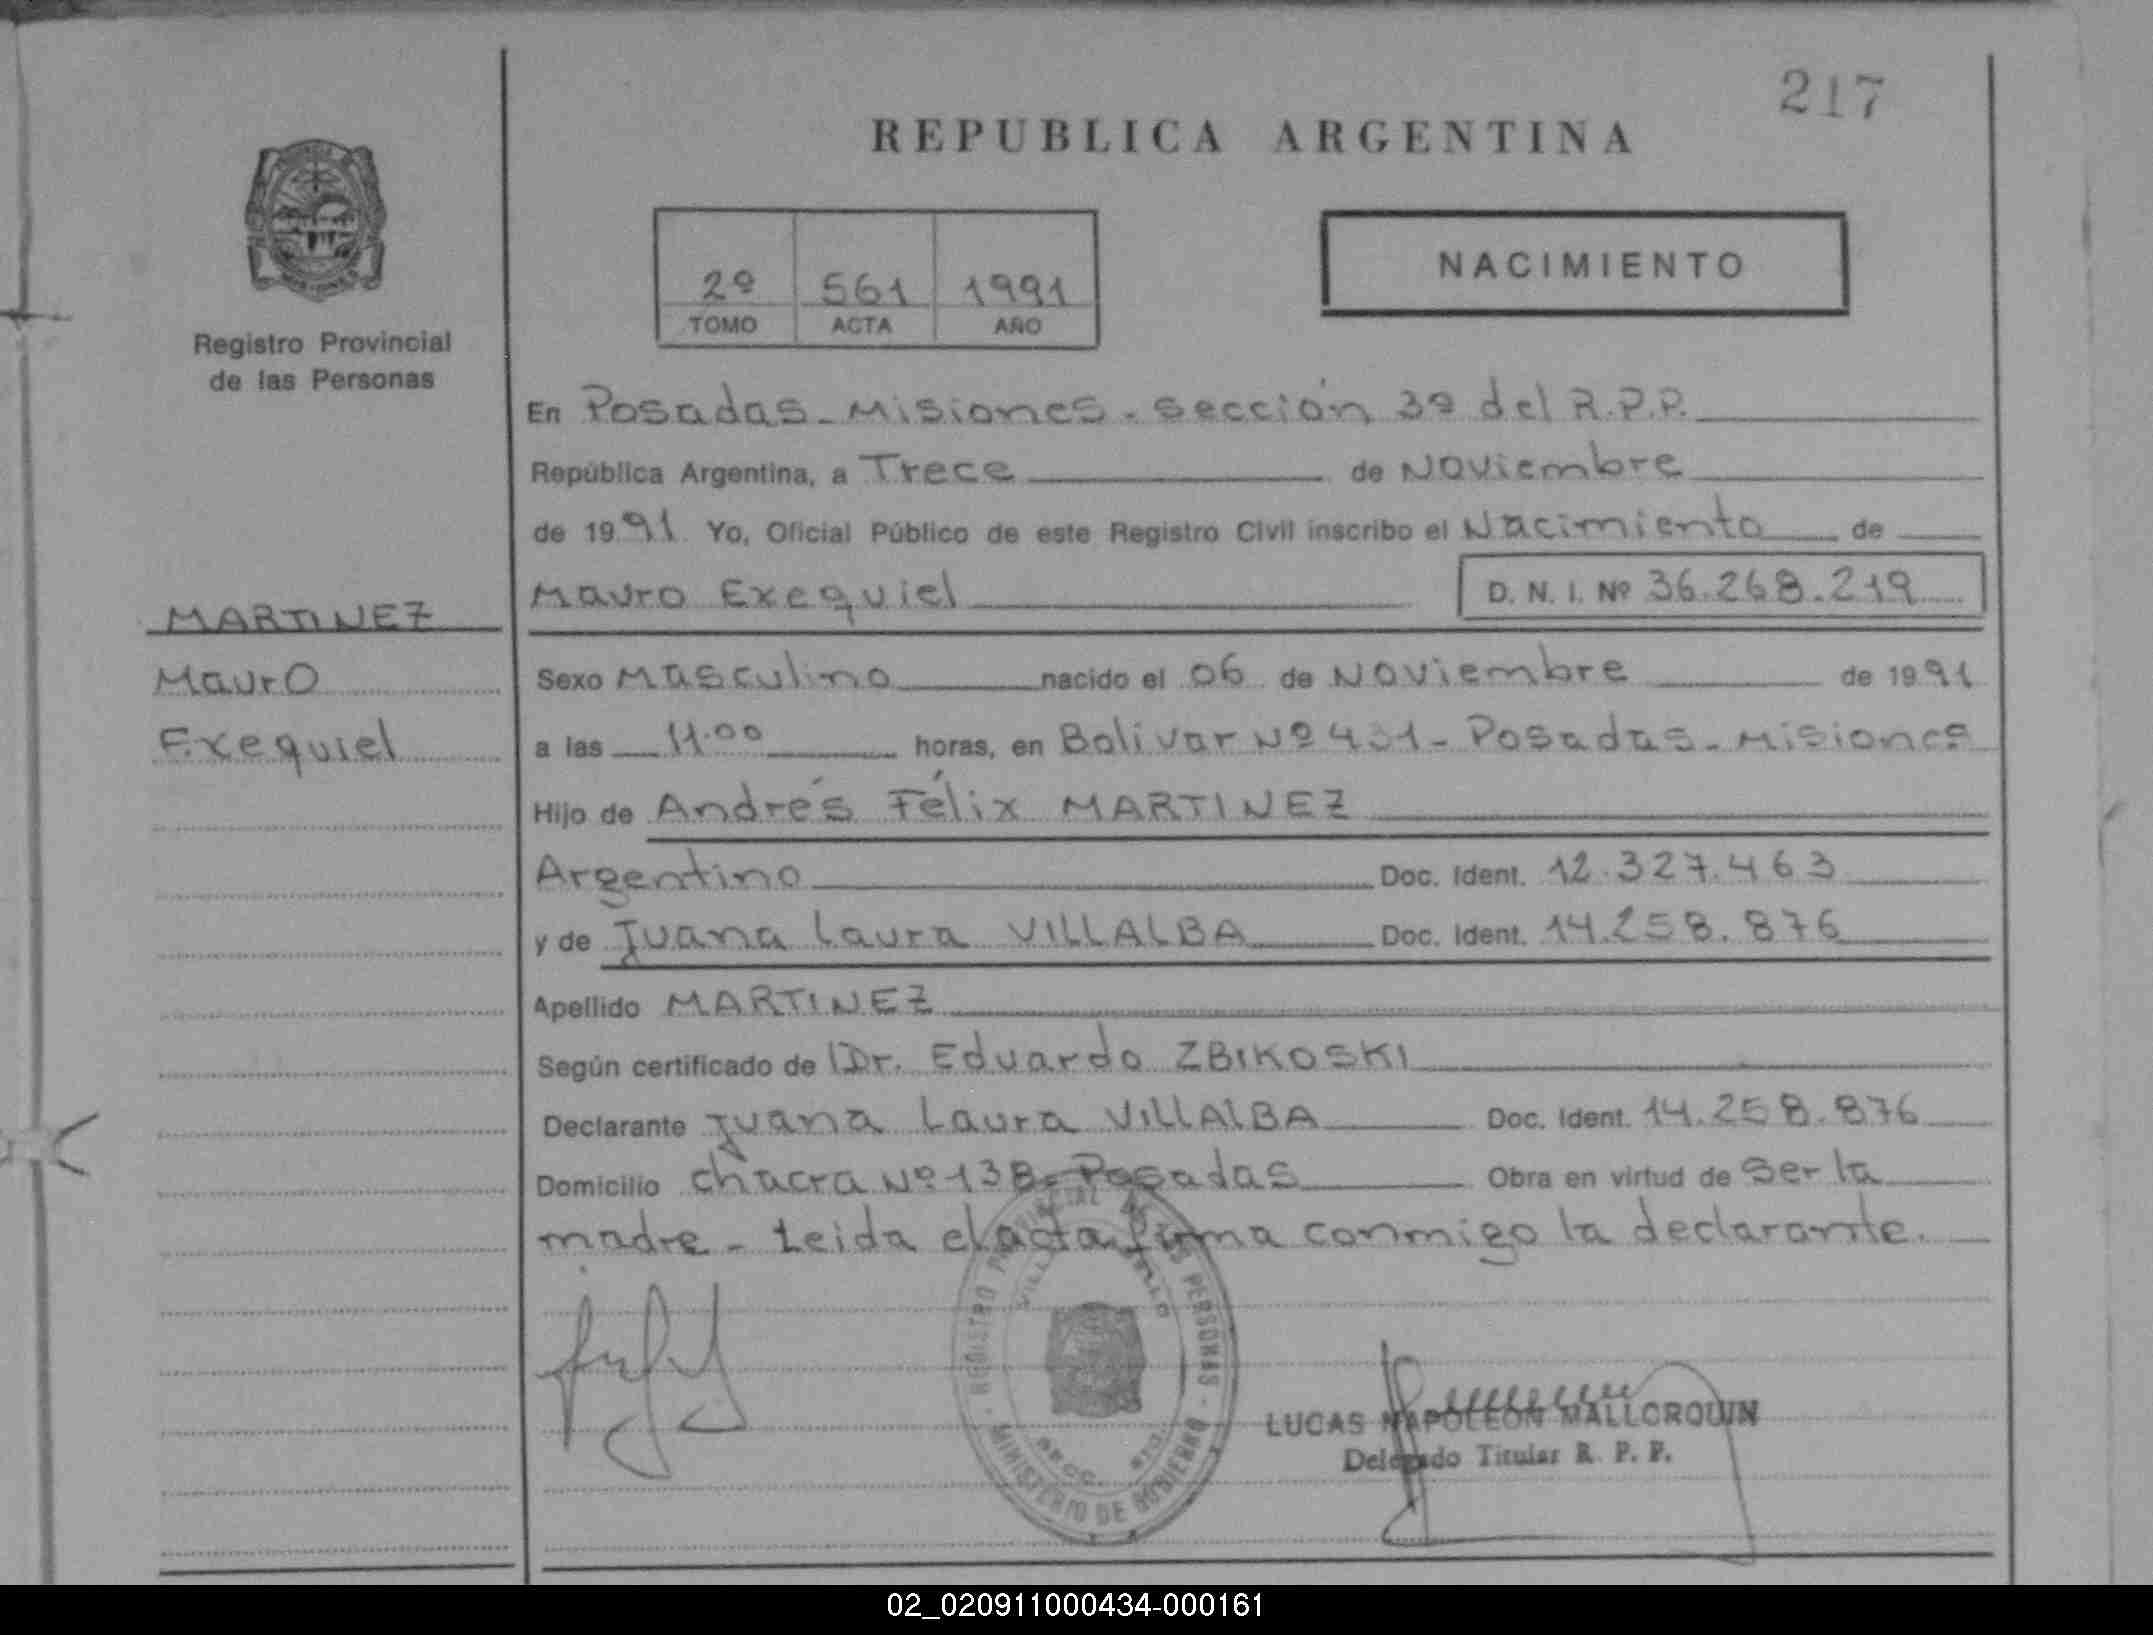 217
REPUBLICA ARGENTINA
2º 561 1991
TOMO ACTA AÑO
NACIMIENTO
Registro Provincial
de las Personas
MARTINEZ
Mauro
Exequiel
En Posadas - Misiones - Sección 3º del R.P.P.
República Argentina, a Trece de Noviembre
de 1991 Yo, Oficial Público de este Registro Civil inscribo el Nacimiento de
Mauro Exequiel D. N. I. Nº 36.268.219
Sexo Masculino nacido el 06 de Noviembre de 1991
a las 11.00 horas, en Bolivar Nº 431 - Posadas - Misiones
Hijo de Andrés Félix MARTINEZ
Argentino Doc. Ident. 12.327.463
y de Juana Laura VILLALBA Doc. Ident. 14.258.876
Apellido MARTINEZ
Según certificado de Dr. Eduardo ZBIKOSKI
Declarante Juana Laura VILLALBA Doc. Ident. 14.258.876
Domicilio Chacra Nº 138 - Posadas Obra en virtud de Ser la
madre - Leida el acta firma conmigo la declarante.
REGISTRO PROVINCIAL DE LAS PERSONAS
MINISTERIO DE GOBIERNO
LUCAS NAPOLEON MALLORQUIN
Delegado Titular R. P. P.
02_020911000434-000161